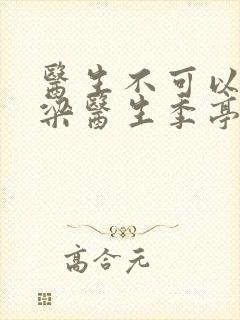 醫生不可以
梁醫生季亭
高合元